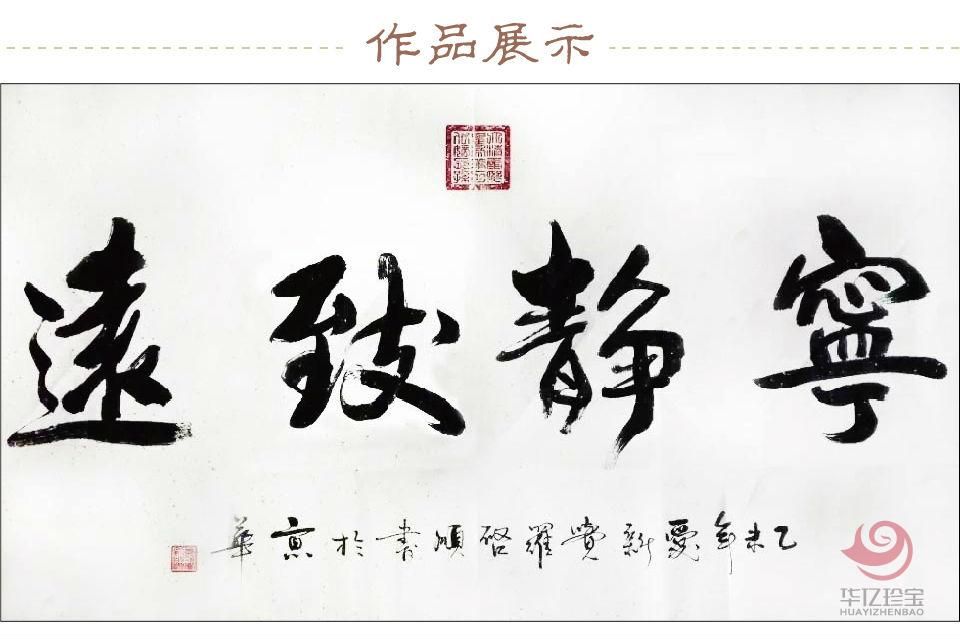 作品展示
寧靜致遠
乙未年愛新覺羅啓順書於京華
华亿珍宝
HUAYIZHENBAO